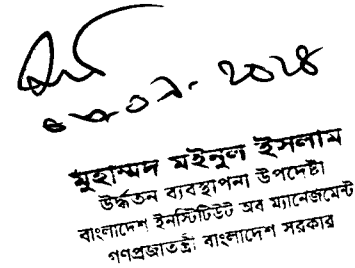 ২০২৪
মুহাম্মদ মইনুল ইসলাম
উর্দ্ধতন ব্যবস্থাপনা উপদেষ্টা
বাংলাদেশ ইনস্টিটিউট অব ম্যানেজমেন্ট
গণপ্রজাতন্ত্রী বাংলাদেশ সরকার